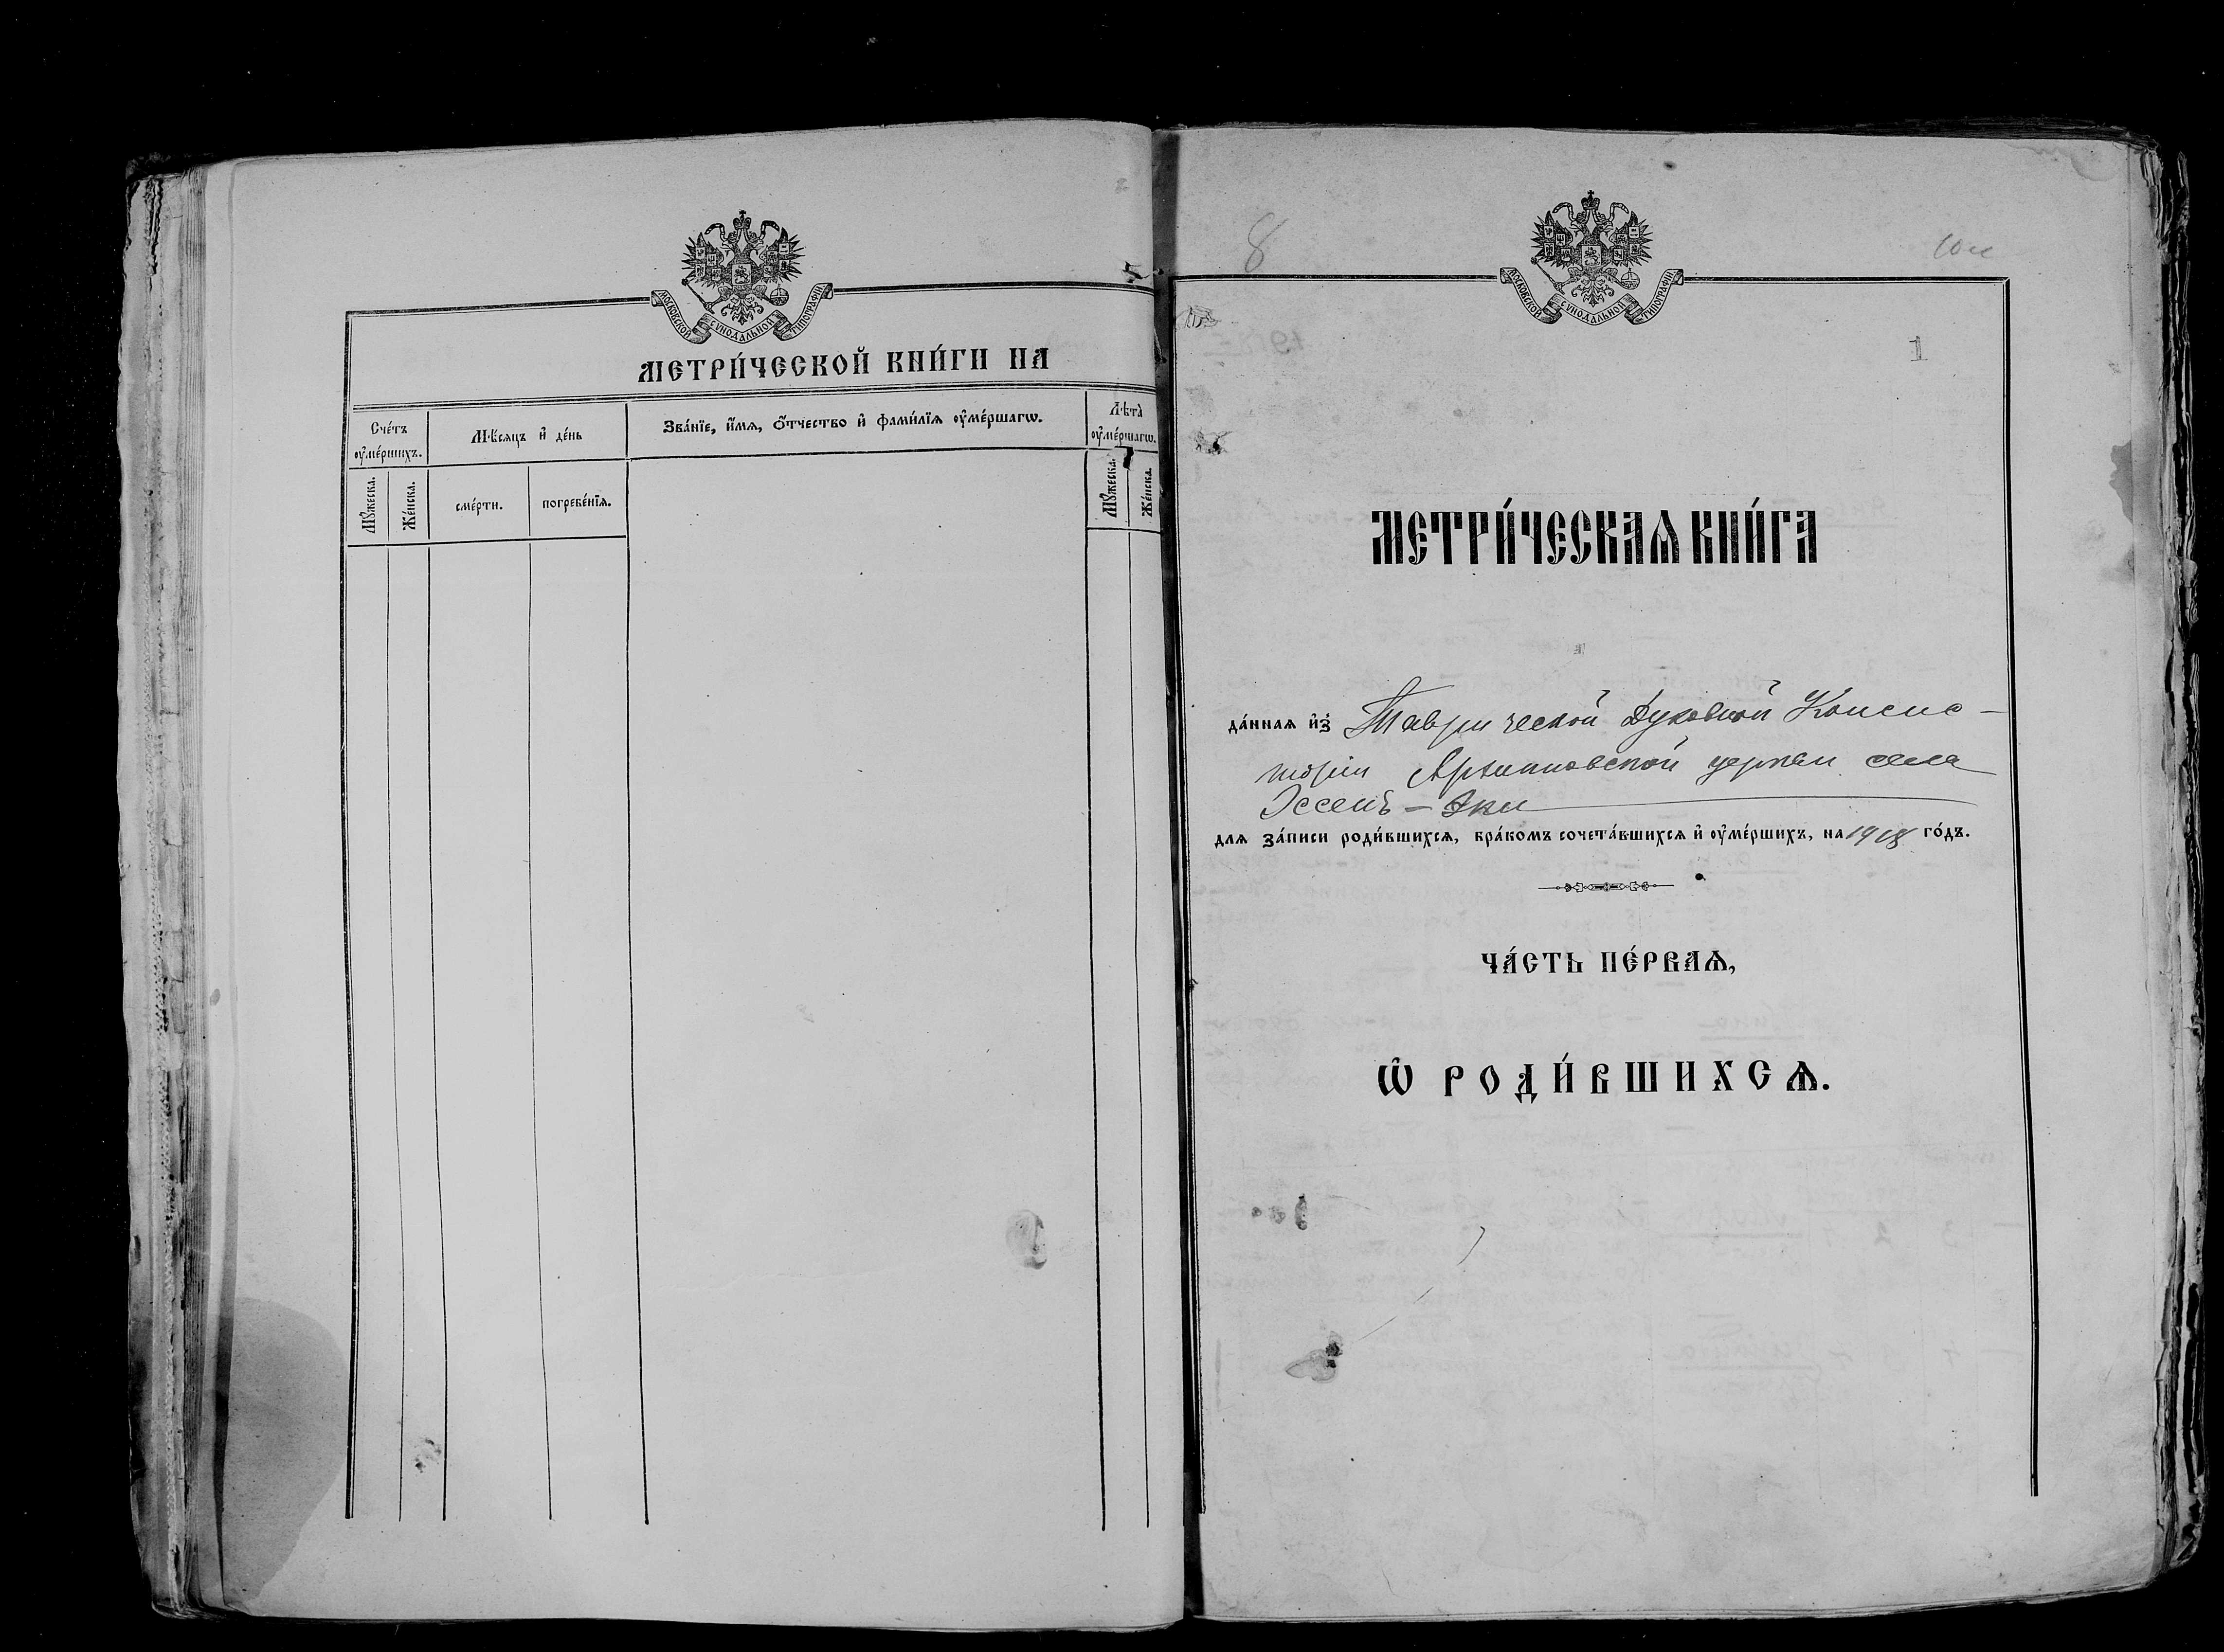 МОСКОВСКОЙ СѴНОДАЛЬНОЙ ТИПОГРАФІИ
МЕТРИ́ЧЕСКОЙ КНИ́ГИ НА
Сче́тъ ᲂу҆ме́ршихъ.
Мѣ́сяцъ и҆ де́нь
Зва́нїе, и҆́мѧ, ѻ҆́тчество и҆ фами́лїѧ ᲂу҆ме́ршагѡ.
Лѣ́та̀ ᲂу҆ме́ршагѡ.
Мꙋ́жеска.
Же́нска.
сме́рти.
погребе́нїѧ.
Мꙋ́жеска.
Же́нска.
8
МОСКОВСКОЙ СѴНОДАЛЬНОЙ ТИПОГРАФІИ
1
МЕТРИ́ЧЕСКАѦ КНИ́ГА
да́ннаѧ и҆з̾ Таврической Духовной Консис-
торіи церкви села
Эссенъ-Эки
для за́писи роди́вшихсѧ, бра́комъ сочета́вшихсѧ и҆ ᲂу҆ме́ршихъ, на 1918 го́дъ.
ЧА́СТЬ ПЕ́РВАѦ,
Ѡ҆ РОДИ́ВШИХСѦ.